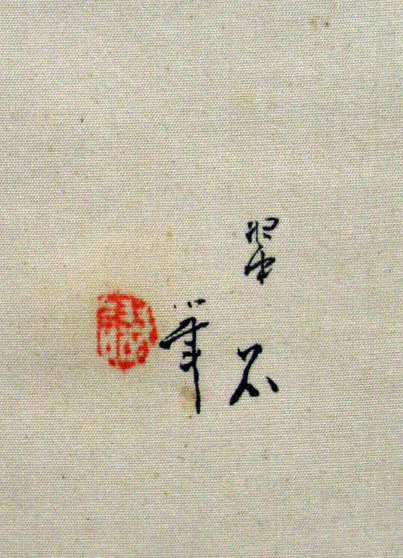 翠石
筆